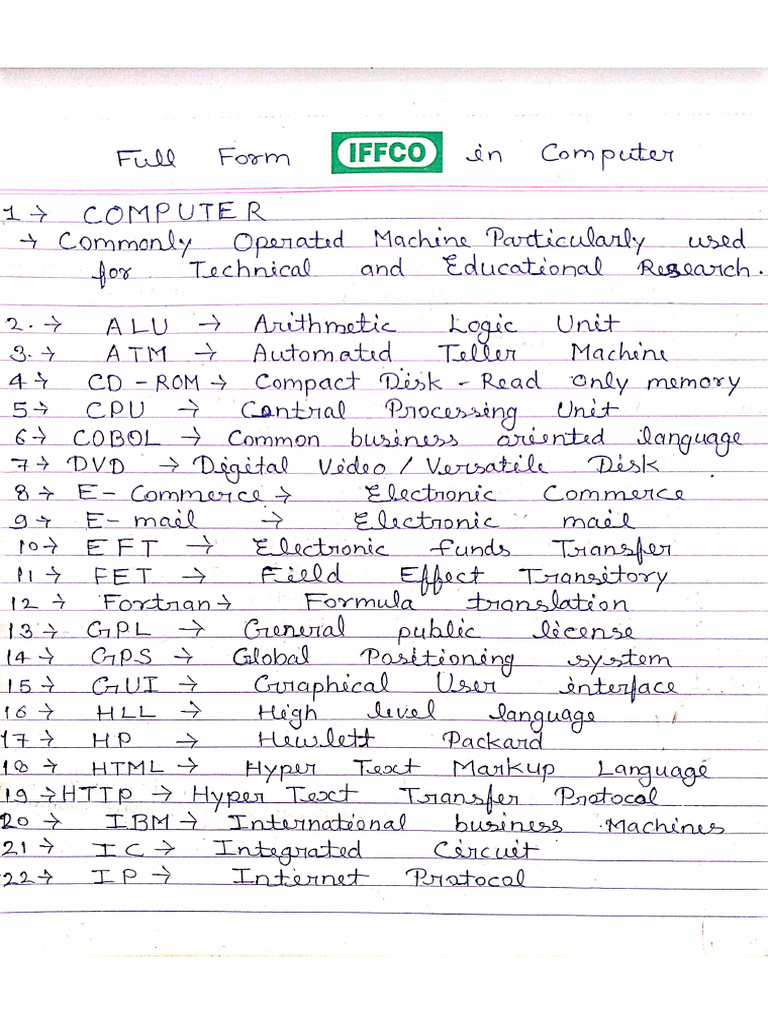 Full Form IFFCO in Computer
1 → COMPUTER
→ Commonly Operated Machine Particularly used
for Technical and Educational Research.
2. → ALU → Arithmetic Logic Unit
3. → ATM → Automated Teller Machine
4 → CD-ROM → Compact Disk - Read only memory
5 → CPU → Central Processing Unit
6 → COBOL → Common business oriented language
7 → DVD → Digital Video / Versatile Disk
8 → E-Commerce → Electronic Commerce
9 → E-mail → Electronic mail
10 → EFT → Electronic funds Transfer
11 → FET → Field Effect Transitory
12 → Fortran → Formula translation
13 → GPL → General public license
14 → GPS → Global Positioning system
15 → GUI → Graphical User interface
16 → HLL → High level language
17 → HP → Hewlett Packard
18 → HTML → Hyper Text Markup Language
19 → HTTP → Hyper Text Transfer Protocol
20 → IBM → International business Machines
21 → IC → Integrated Circuit
22 → IP → Internet Protocol